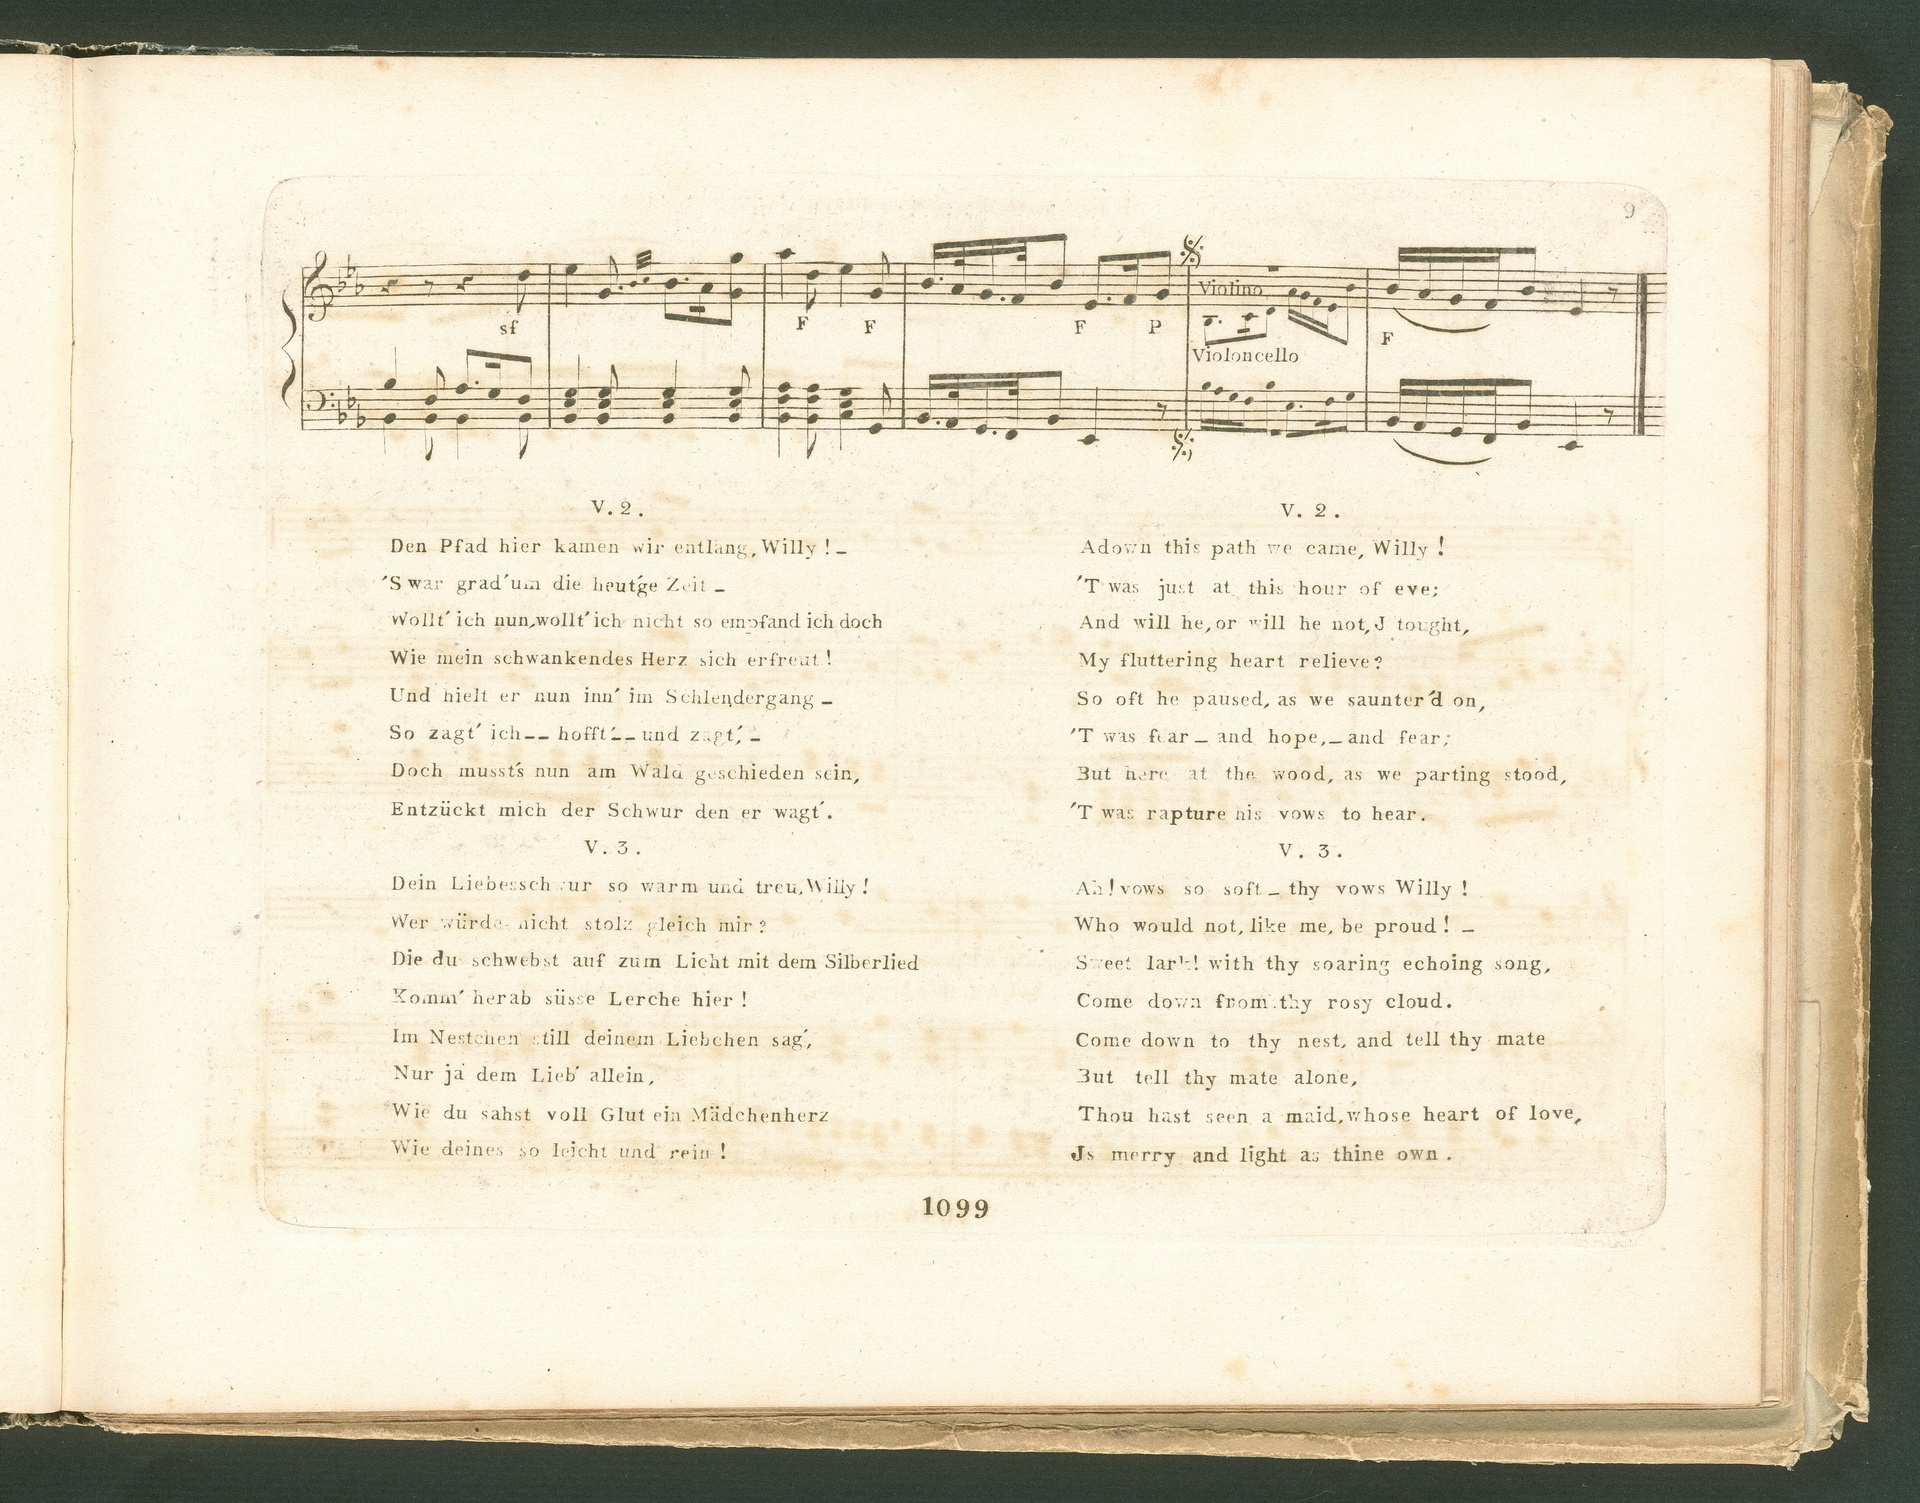 9
sf F F F P Violino F
Violoncello
V. 2.
Den Pfad hier kamen wir entlang, Willy ! –
'S war grad' um die heut'ge Zeit –
Wollt' ich nun, wollt' ich nicht so empfand ich doch
Wie mein schwankendes Herz sich erfreut !
Und hielt er nun inn' im Schlendergang –
So zagt' ich – – hofft' – – und zagt', –
Doch musst's nun am Wald geschieden sein,
Entzückt mich der Schwur den er wagt'.
V. 3.
Dein Liebesschwur so warm und treu, Willy !
Wer würde nicht stolz gleich mir ?
Die du schwebst auf zum Licht mit dem Silberlied
Komm' herab süsse Lerche hier !
Im Nestchen still deinem Liebchen sag',
Nur ja dem Lieb' allein,
Wie du sahst voll Glut ein Mädchenherz
Wie deines so leicht und rein !
V. 2.
Adown this path we came, Willy !
'T was just at this hour of eve;
And will he, or will he not, J tought,
My fluttering heart relieve ?
So oft he paused, as we saunter'd on,
'T was fear – and hope, – and fear;
But here at the wood, as we parting stood,
'T was rapture his vows to hear.
V. 3.
Ah ! vows so soft – thy vows Willy !
Who would not, like me, be proud ! –
Sweet lark ! with thy soaring echoing song,
Come down from thy rosy cloud.
Come down to thy nest, and tell thy mate
But tell thy mate alone,
Thou hast seen a maid, whose heart of love,
Js merry and light as thine own.
1099